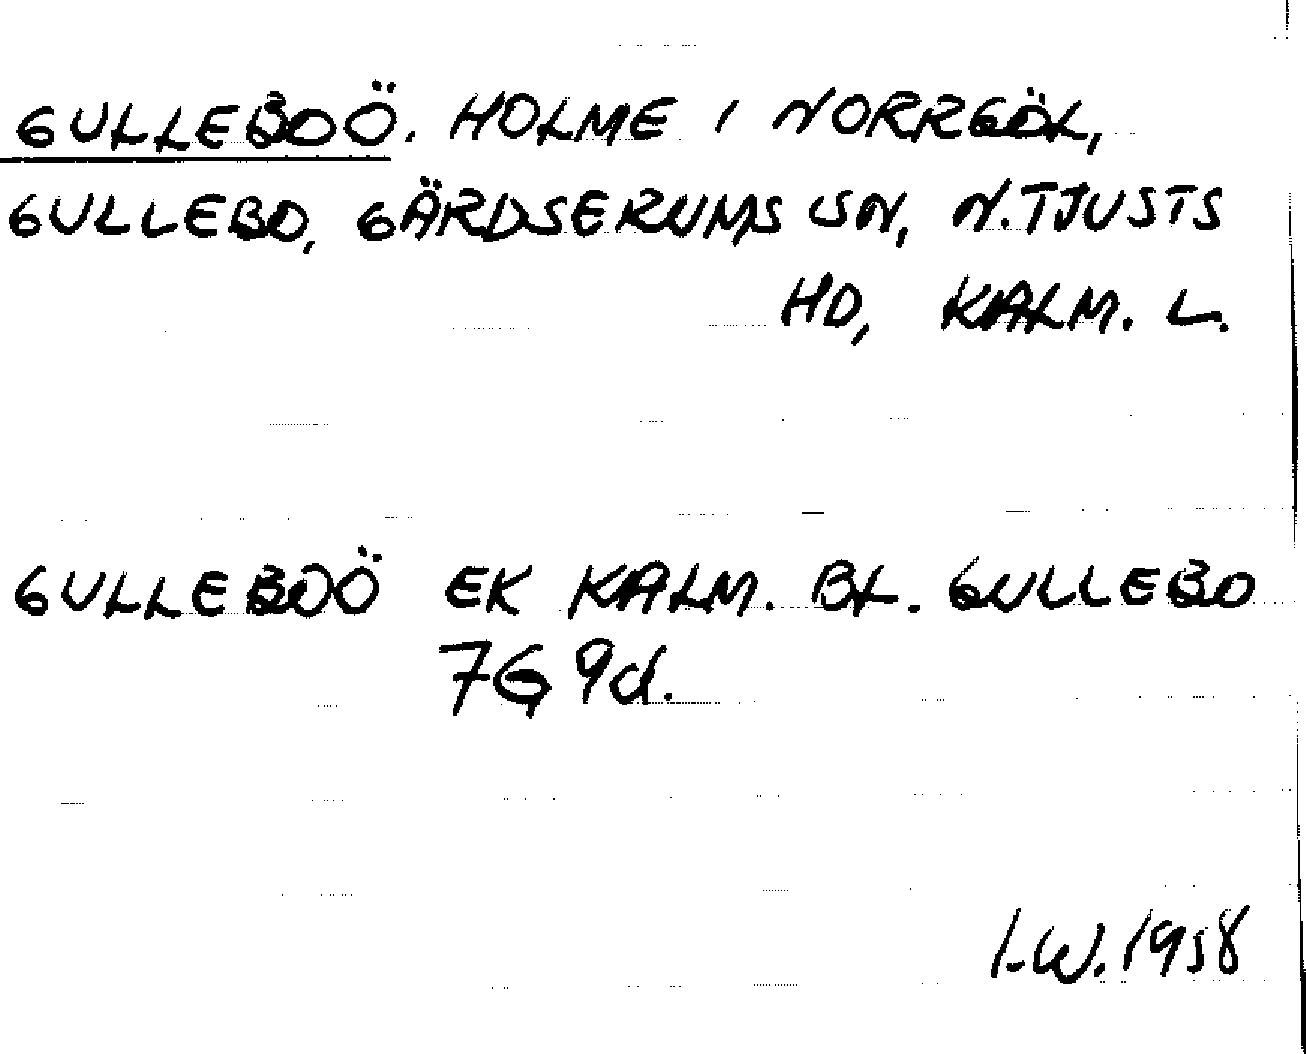 GULLEBOÖ. HOLME I NORRGÖL,
GULLEBO, GÄRDSERUMS SN, N. TJUSTS
HD, KALM. L.
GULLEBOÖ EK KALM. BL. GULLEBO
7G 9d.
I.W. 1958